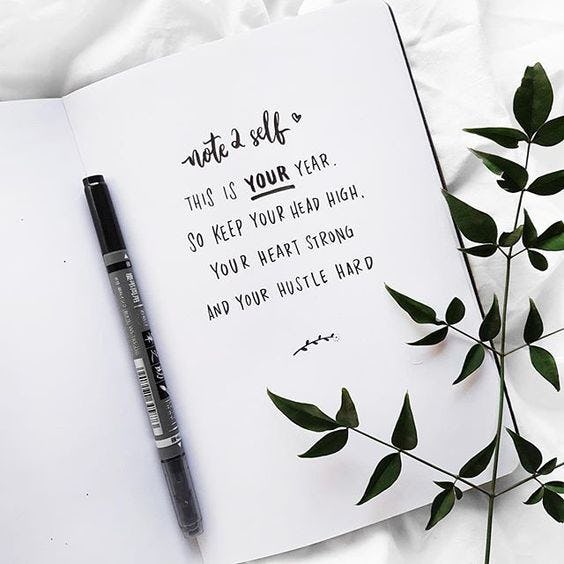 note 2 self
THIS IS YOUR YEAR.
SO KEEP YOUR HEAD HIGH.
YOUR HEART STRONG
AND YOUR HUSTLE HARD